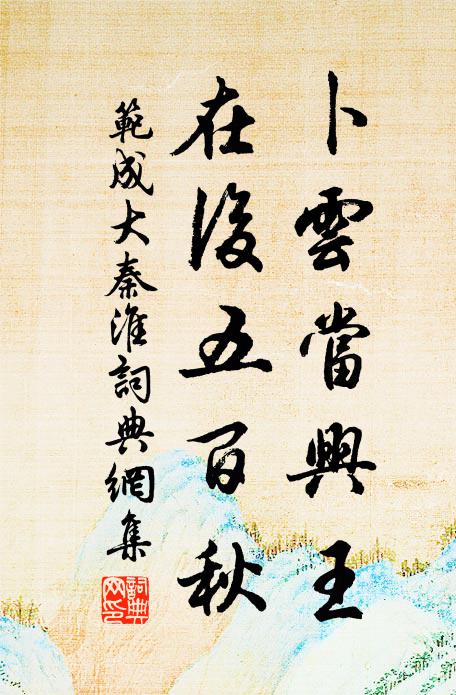 卜雲當興王
在後五百秋
範成大秦淮詞典網集
詞典